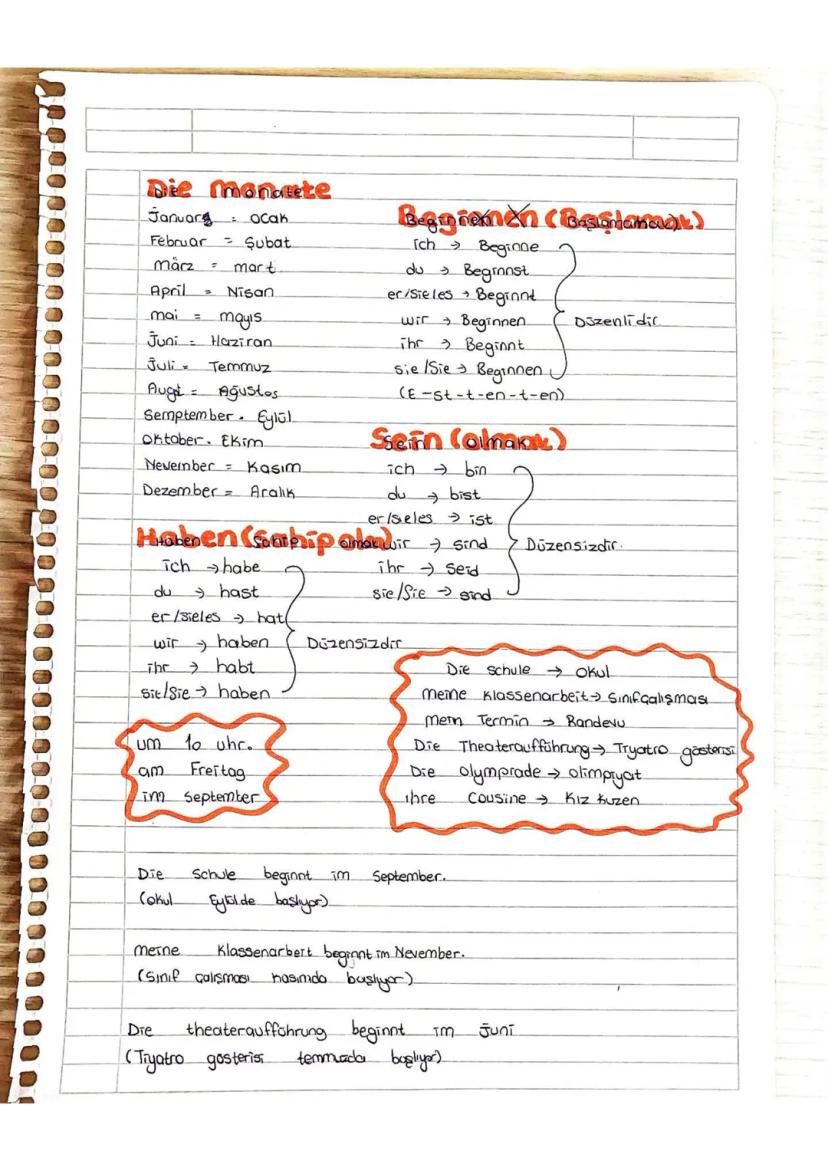 Die Monate
Januar = Ocak
Februar = Şubat
März = mart
April = Nisan
mai = mayıs
Juni = Haziran
Juli = Temmuz
Augt = Ağustos
Semptember = Eylül
Oktober = Ekim
Nevember = Kasım
Dezember = Aralık
Haben (Sahip olmak)
ich → habe
du → hast
er/sieles → hat
wir → haben
ihr → habt
sie/Sie → haben
Düzensizdir
um 10 uhr.
am Freitag
im September
Beginnen (Başlamak)
ich → Beginne
du → Beginnst
er/sieles → Beginnt
wir → Beginnen
ihr → Beginnt
sie/Sie → Beginnen
Düzenlidir
(E-st-t-en-t-en)
Sein (olmak)
ich → bin
du → bist
er/sieles → ist
wir → sind
ihr → Seid
sie/Sie → sind
Düzensizdir.
Die schule → okul
meine Klassenarbeit → Sınıf çalışması
mein Termin → Randevu
Die Theateraufführung → Tryatro gösterisi
Die olympiade → olimpiyat
ihre Cousine → Kız kuzen
Die Schule beginnt im September.
(okul Eylülde başlıyor)
meine Klassenarbeit beginnt im Nevember.
(Sınıf çalışması kasımda başlıyor)
Die theateraufführung beginnt im Juni
(Tiyatro gösterisi temmuzda başlıyor)